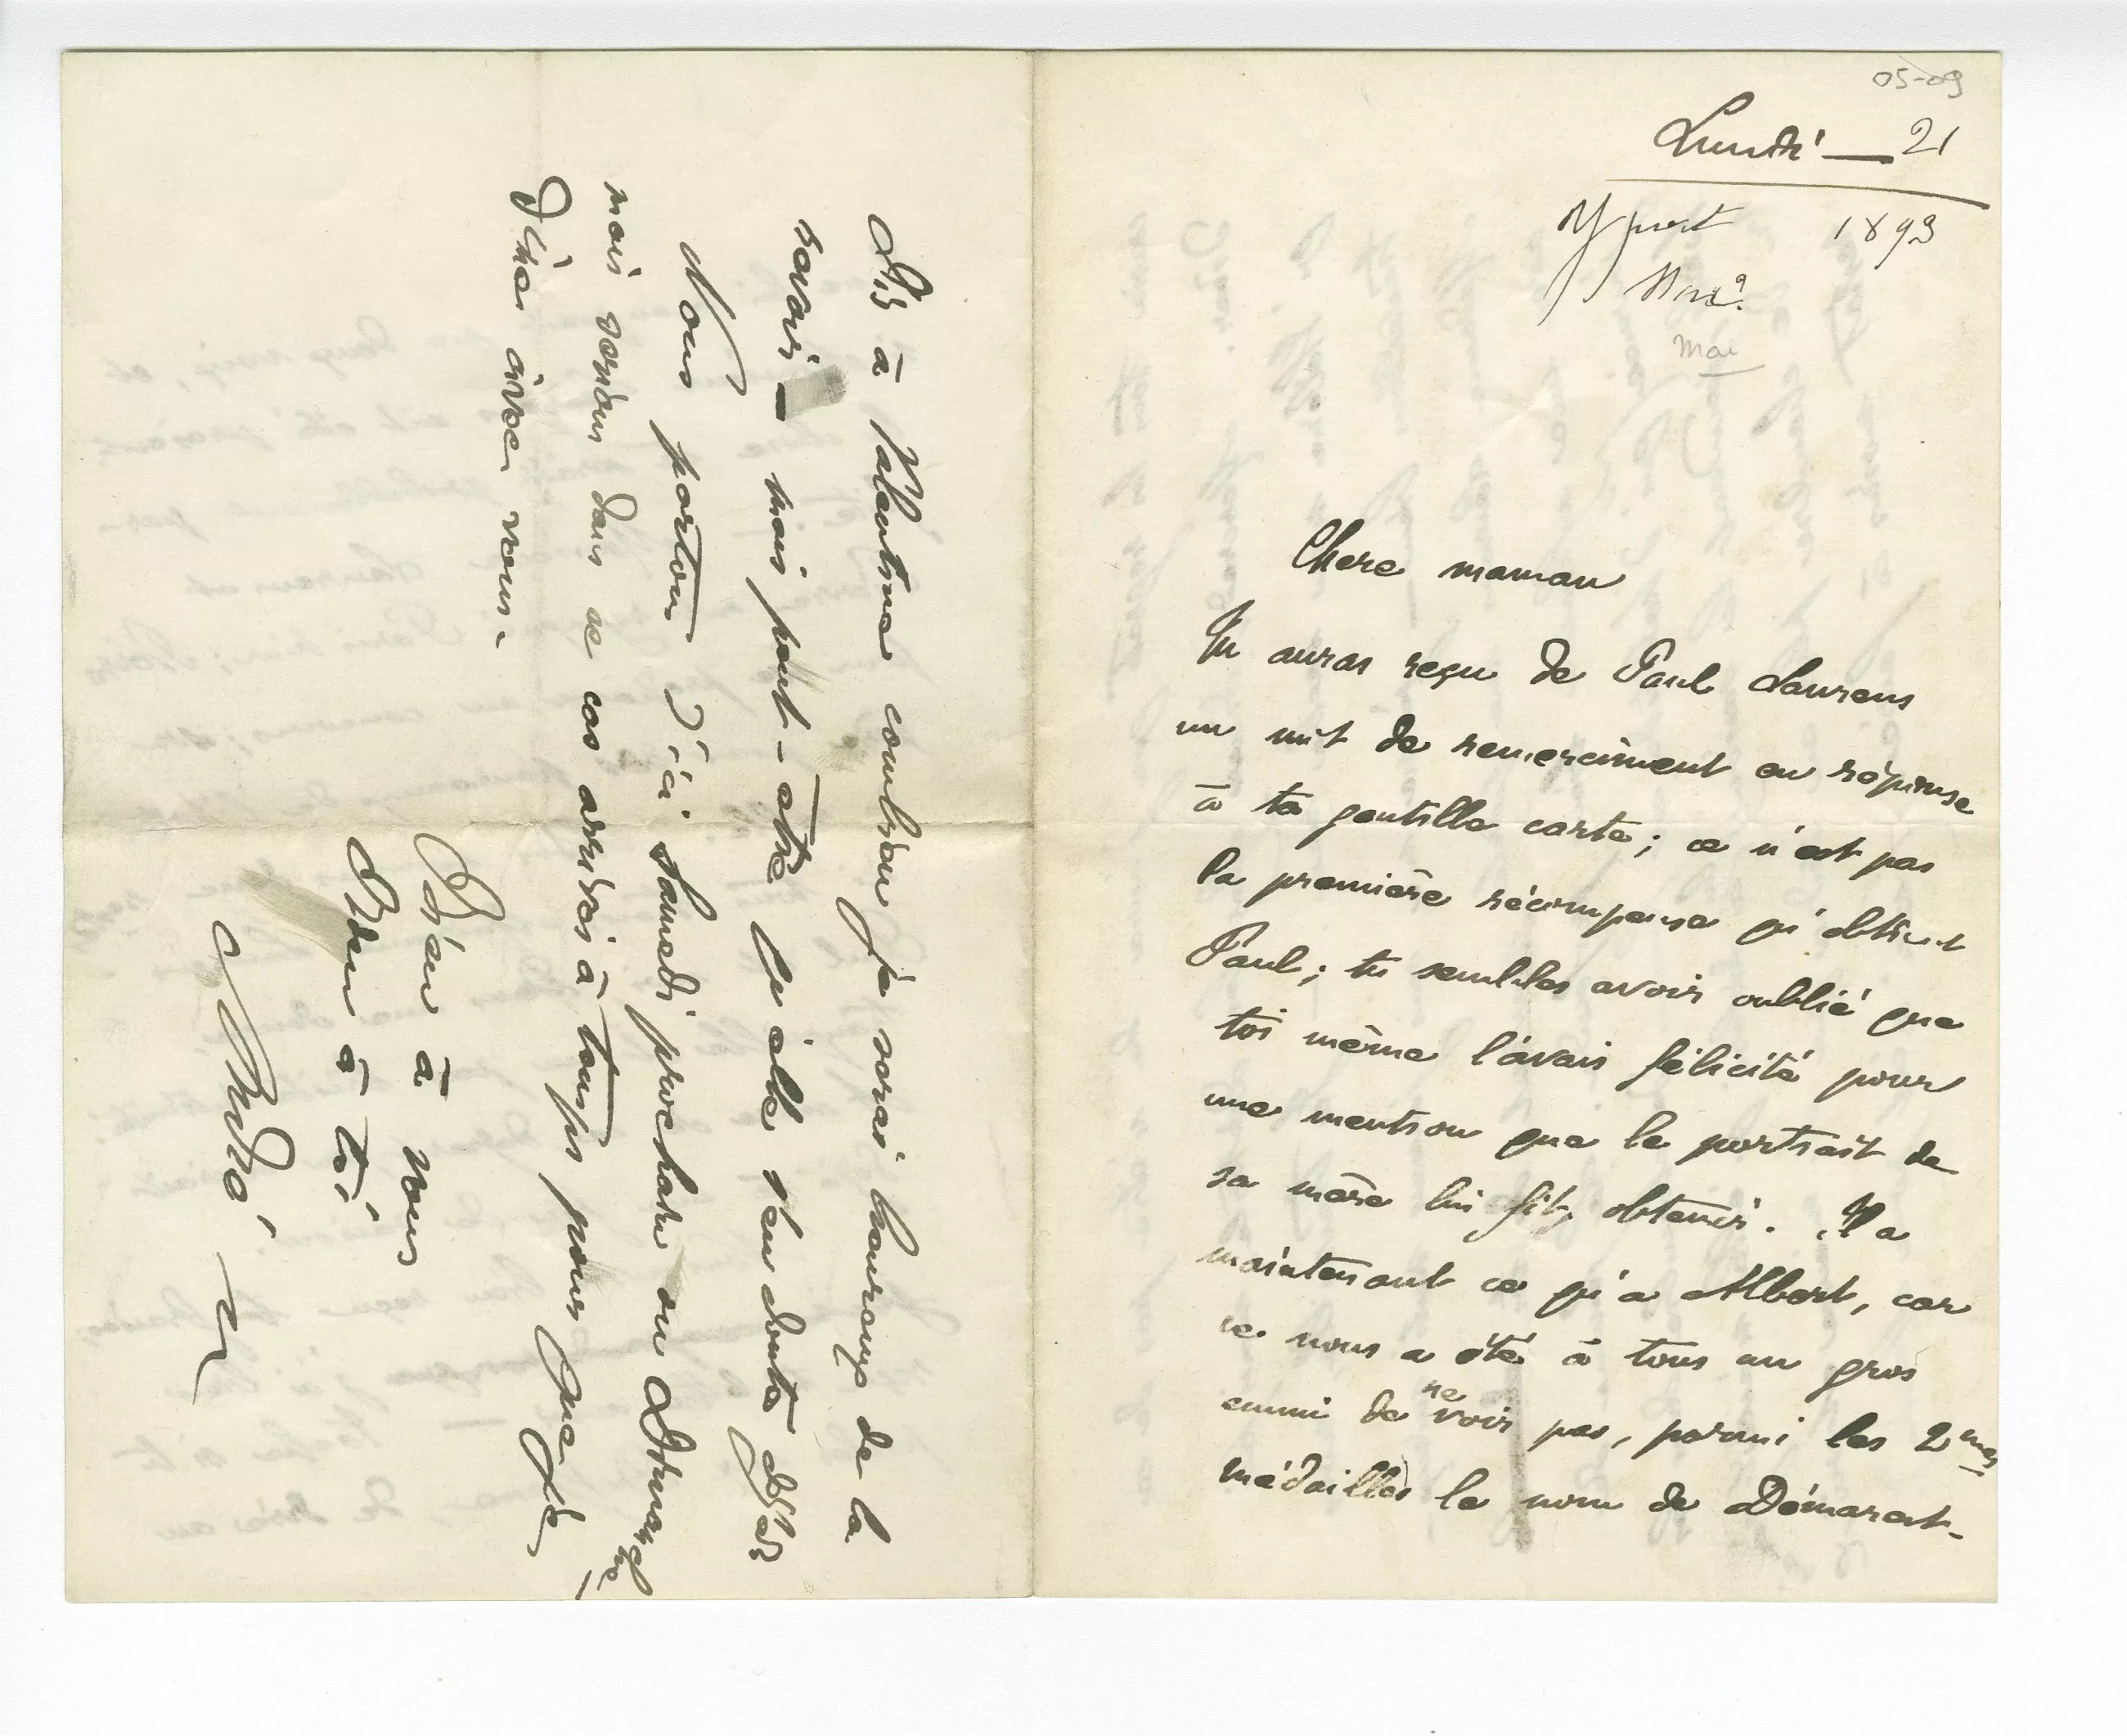 05-09
Lundi — 21
Yport 1893
Mai?
Mai
Chere maman
Tu auras reçu de Paul Laurens
un mot de remerciment en réponse
à ta gentille carte ; ce n'est pas
la première récompense qu'obtient
Paul ; tu sembles avoir oublié que
toi même l'avais félicité pour
une mention que le portrait de
sa mère lui fit obtenir. Il a
maintenant ce qu'a Albert, car
ce nous a été à tous un gros
ennui de ne voir pas, parmi les 2mes
médailles le nom de Démarest.
Dis à Valentine combien je serai heureux de la
revoir — mais peut-être qu'elle s'en doute déjà
Nous partons d'ici Samedi prochain ou Dimanche —
mais serons dans ce cas arrivés à temps pour que je
dîne avec vous.
Bien à vous
Bien à toi
André